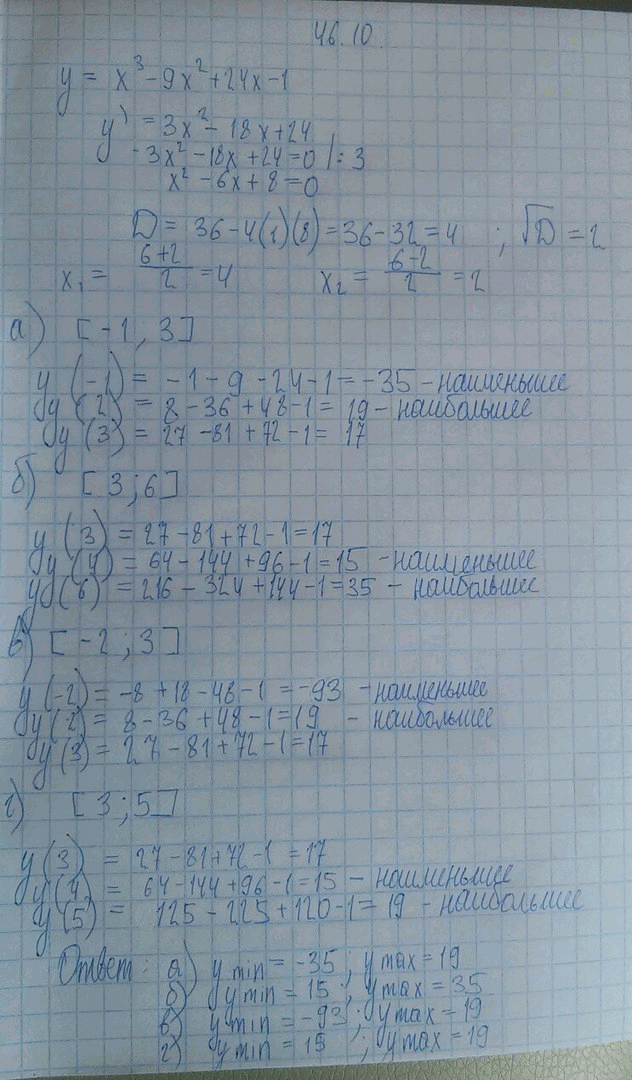 46.10.
y = x³-9x²+24x-1
y' = 3x²-18x+24
3x²-18x+24=0 |:3
x²-6x+8=0
D = 36-4(1)(8)=36-32=4 ; √D = 2
x₁ = (6+2)/2 = 4 x₂ = (6-2)/2 = 2
а) [-1, 3]
y(-1) = -1-9-24-1=-35 - наименьшее
y(2) = 8-36+48-1= 19 - наибольшее
y(3) = 27-81+72-1= 17
б) [3;6]
y(3) = 27-81+72-1=17
y(4) = 64-144+96-1=15 - наименьшее
y(6) = 216-324+144-1=35 - наибольшее
в) [-2;3]
y(-2) = -8+18-48-1 = -93 - наименьшее
y(2) = 8-36+48-1=19 - наибольшее
y(3) = 27-81+72-1=17
г) [3;5]
y(3) = 27-81+72-1 =17
y(4) = 64-144+96-1=15 - наименьшее
y(5) = 125-225+120-1= 19 - наибольшее
Ответ: а) y min = -35 ; y max = 19
б) y min = 15 ; y max = 35
в) y min = -93 ; y max = 19
г) y min = 15 ; y max = 19